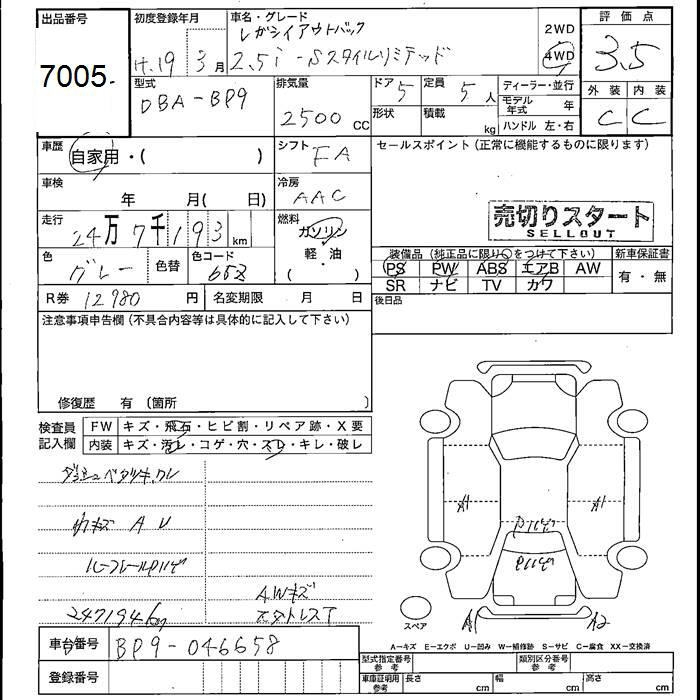 出品番号 初度登録年月 車名・グレード 評価点
レガシイアウトバック 2WD
7005 H.19 3月 2.5i-Sスタイルリミテッド 4WD 3.5
型式 排気量 ドア 5 定員 5人 ディーラー・並行 外装 内装
DBA-BP9 2500cc 形状 積載 kg モデル年式 年 C C
ハンドル 左・右
車歴 自家用・( ) シフト FA セールスポイント (正常に機能するものに限ります)
車検 年 月( 日) 冷房 AAC
売切りスタート
SELLOUT
走行 24万7千193km 燃料 ガソリン
軽・油
( )
装備品 (純正品に限り○をつけて下さい) 新車保証書
色 グレー 色替 色コード PS PW ABS エアB AW 有・無
SR ナビ TV カワ
R券 12980円 名変期限 月 日 後日品
注意事項申告欄(不具合内容等は具体的に記入して下さい)
修復歴 有 (箇所 )
検査員記入欄 FW キズ・飛石・ヒビ割・リペア跡・X要
内装 キズ・汚レ・コゲ・穴・スレ・キレ・破レ
キズ A U
A1 A1
A.Wキズ
247194km
スペア A1 A2
A-キズ E-エクボ U-凹み W-補修跡 S-サビ C-腐食 XX-交換済
車台番号 BP9-046658 型式指定番号 参考 類別区分番号 参考
登録番号 車庫証明用 参考 長さ cm 幅 cm 高さ cm